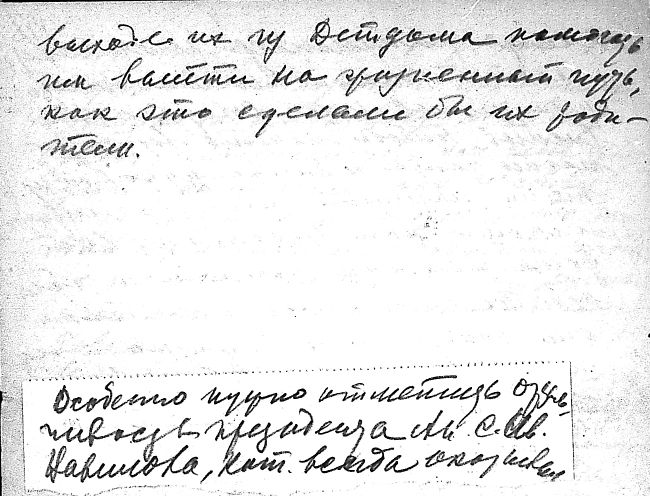 выходе их из Детдома помогать
им выйти на жизненный путь,
как это сделали бы их роди-
тели.
Особенно нужно отметить отзыв-
чивость президента Ак. С. Ив.
Вавилова, кот. всегда оказывал